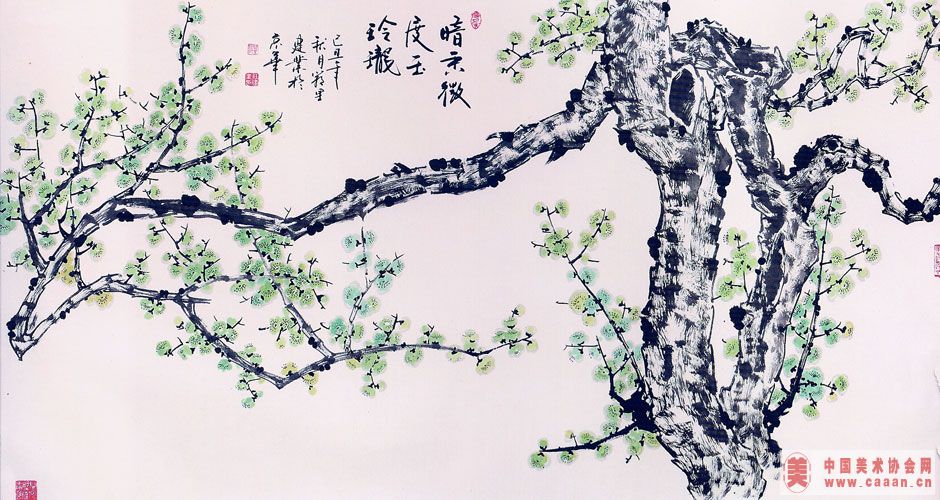 暗香微
度玉
玲瓏
己丑年
秋月
建業於
京華
美
中国美术协会网
www.caaan.cn